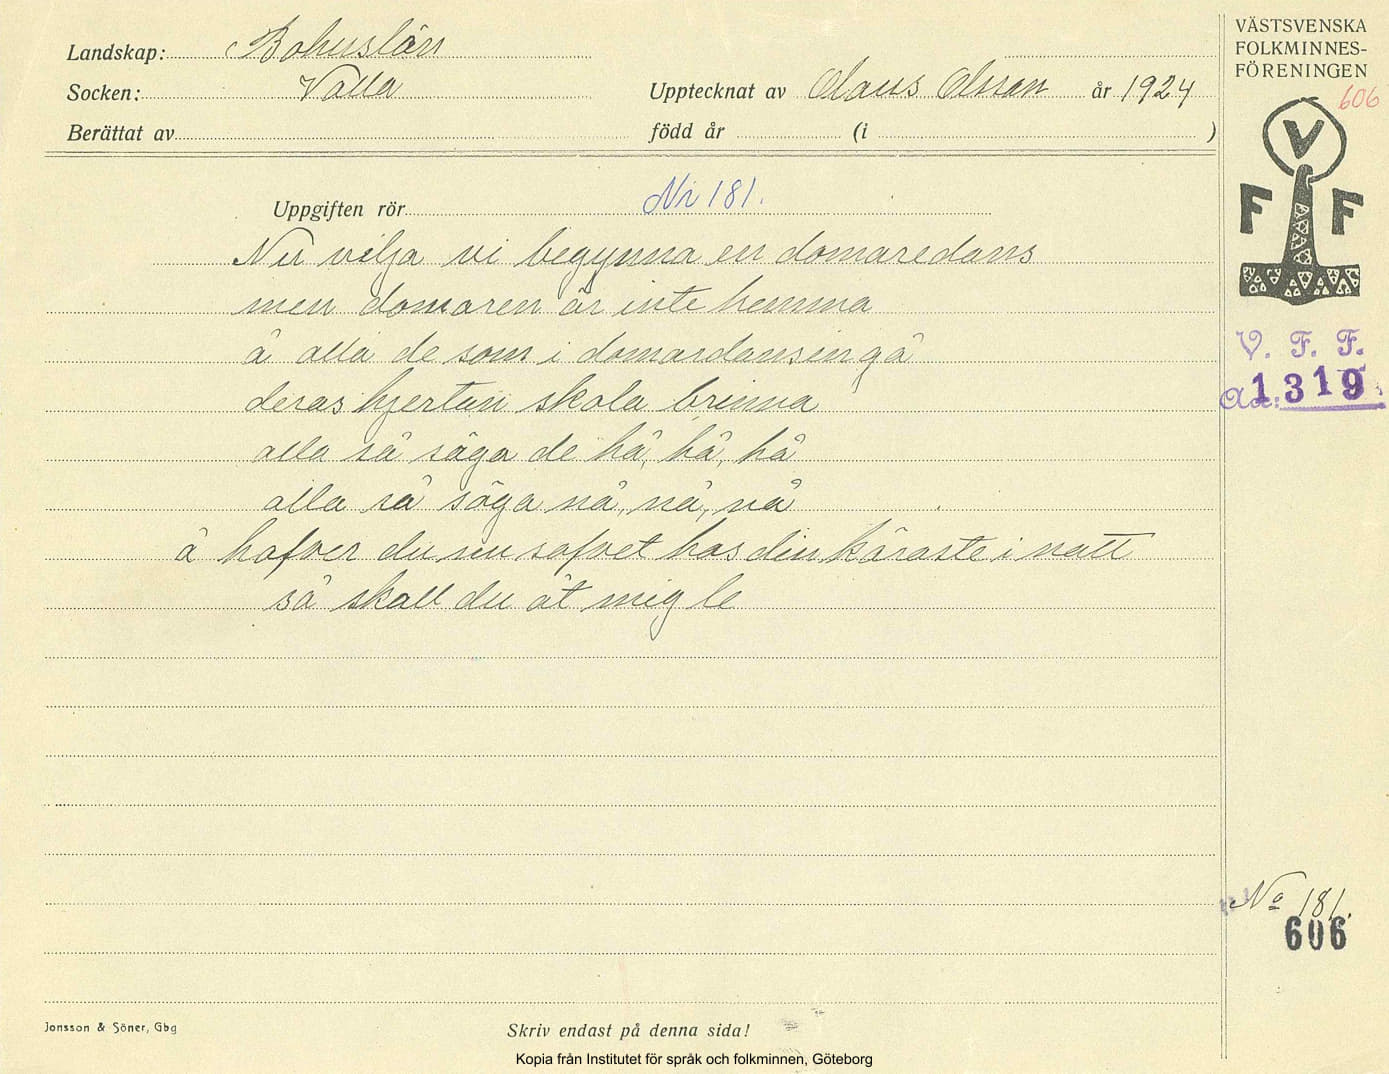 Landskap: Bohuslän
Socken: Valla
Upptecknat av Olaus Olsson år 1924
Berättat av
född år (i )
Uppgiften rör Nr 181.
Nu vilja vi begynna en domaredans
men domaren är inte hemma
å alla de som i domardansen gå
deras hjertan skola brinna
alla så säga de hå, hå, hå
alla så säga nå, nå, nå
å hafver du nu sofvet hos din käraste i natt
så skall du åt mig le
Jonsson & Söner, Gbg
Skriv endast på denna sida!
Kopia från Institutet för språk och folkminnen, Göteborg
VÄSTSVENSKA
FOLKMINNES-
FÖRENINGEN
606
V
F F
V. F. F.
Acc: 1319
No 181.
606